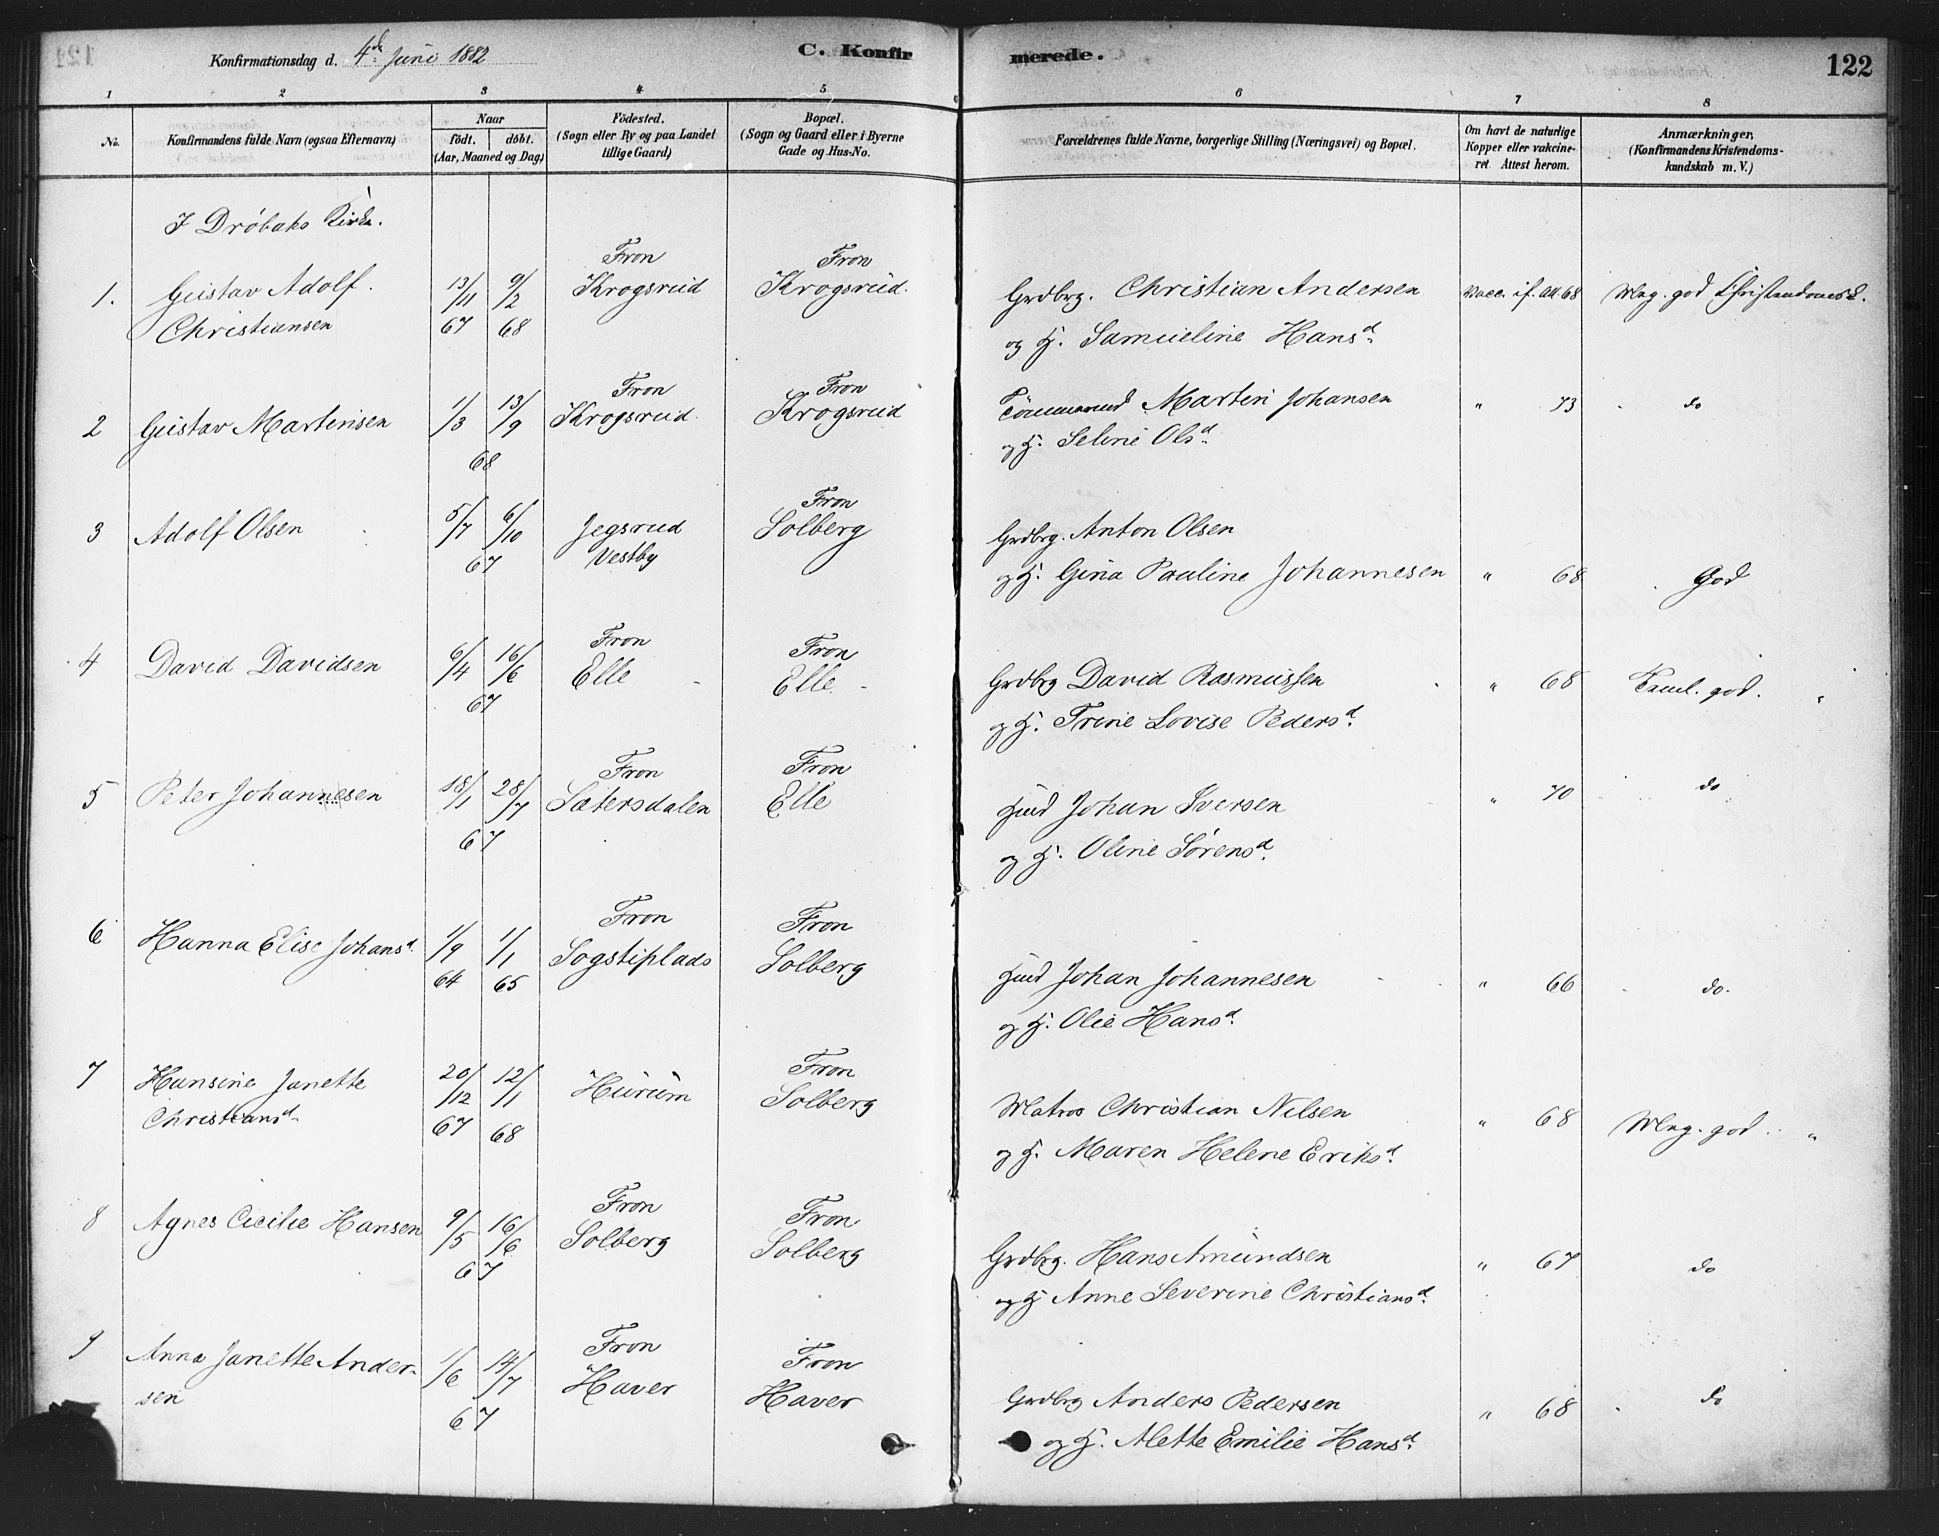 Konfirmationsdag d. 4de Juni 1882
C. Konfir
merede.
122
1 2 3 4 5 6 7 8
No.
Konfirmandens fulde Navn (ogsaa Efternavn)
Naar
født. døbt.
(Aar, Maaned og Dag)
Fødested.
(Sogn eller By og paa Landet
tillige Gaard)
Bopæl.
(Sogn og Gaard eller i Byerne
Gade og Hus-No.
Forældrenes fulde Navne, borgerlige Stilling (Næringsvei) og Bopæl.
Om havt de naturlige
Kopper eller vakcine-
ret. Attest herom.
Anmærkninger,
(Konfirmandens Kristendoms-
kundskab m. V.)
I Drøbaks Kirke.
1. Gustav Adolf Christiansen 13/11 67 9/2 68 Fron Krogsrud Fron Krogsrud. Grdbrg. Christian Andersen Vacc. if. Att 68 Mrg. god Christendomsk.
og H. Samueline Hansd.
2 Gustav Martinsen 1/3 13/9 68 Fron Krogsrud Fron Krogsrud Tømmermd Martin Johansen " 73 do
og H. Seline Olsd.
3 Adolf Olsen 5/7 6/10 67 Jegsrud Vestby Fron Solberg Grdbrg. Anton Olsen
og H. Gina Pauline Johannesen " 68 God
4 David Davidsen 6/4 16/6 67 Fron Elle Fron Elle Grdbrg David Rasmussen " 68 Teml. god. "
og H. Trine Lovise Pedersd.
5 Peter Johannesen 18/1 28/7 67 Fron Sætersdalen Fron Elle Hmd Johan Iversen " 70 do
og H. Oline Sørensd.
6 Hanna Elise Johansd. 1/9 64 1/1 65 Fron Sogstiplads Fron Solberg Hmd Johan Johannesen " 66 do.
og H. Olie Hansd.
7 Hansine Janette Christiansd. 20/12 67 12/1 68 Hurum Fron Solberg Matros Christian Nilsen " 68 Mrg. god. "
og H. Maren Helene Eriksd.
8 Agnes Cicilie Hansen 9/5 16/6 67 Fron Solberg Fron Solberg Grdbrg. Hans Amundsen " 67 do
og H Anne Severine Christiansd.
9 Anna Janette Ander-
sen 1/6 14/7 67 Fron Haver Fron Haver Grdbrg Anders Pedersen " 68 do
og H. Alette Emilie Hansd.